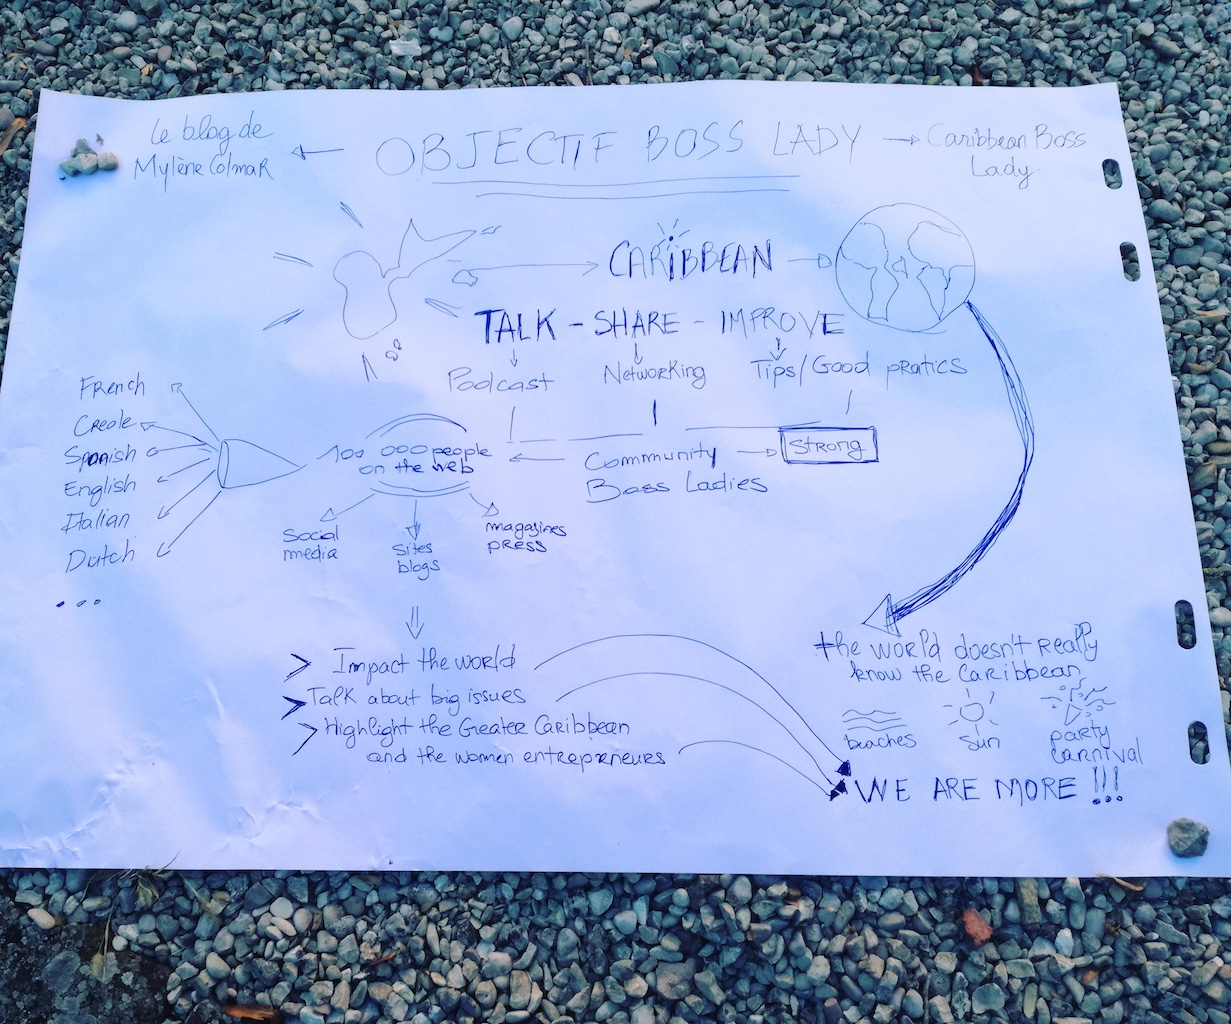 Le blog de
Mylène Colmar
OBJECTIF BOSS LADY
Caribbean Boss
Lady
CARIBBEAN
TALK - SHARE - IMPROVE
Podcast
Networking
Tips/Good pratics
French
Creole
Spanish
English
Italian
Dutch
...
100 000 people
on the web
Community
Boss Ladies
Strong
Social
media
Sites
blogs
magazines
press
Impact the world
Talk about big issues
Highlight the Greater Caribbean
and the women entrepreneurs
the world doesn't really
know the Caribbean
beaches
sun
party
carnival
WE ARE MORE !!!